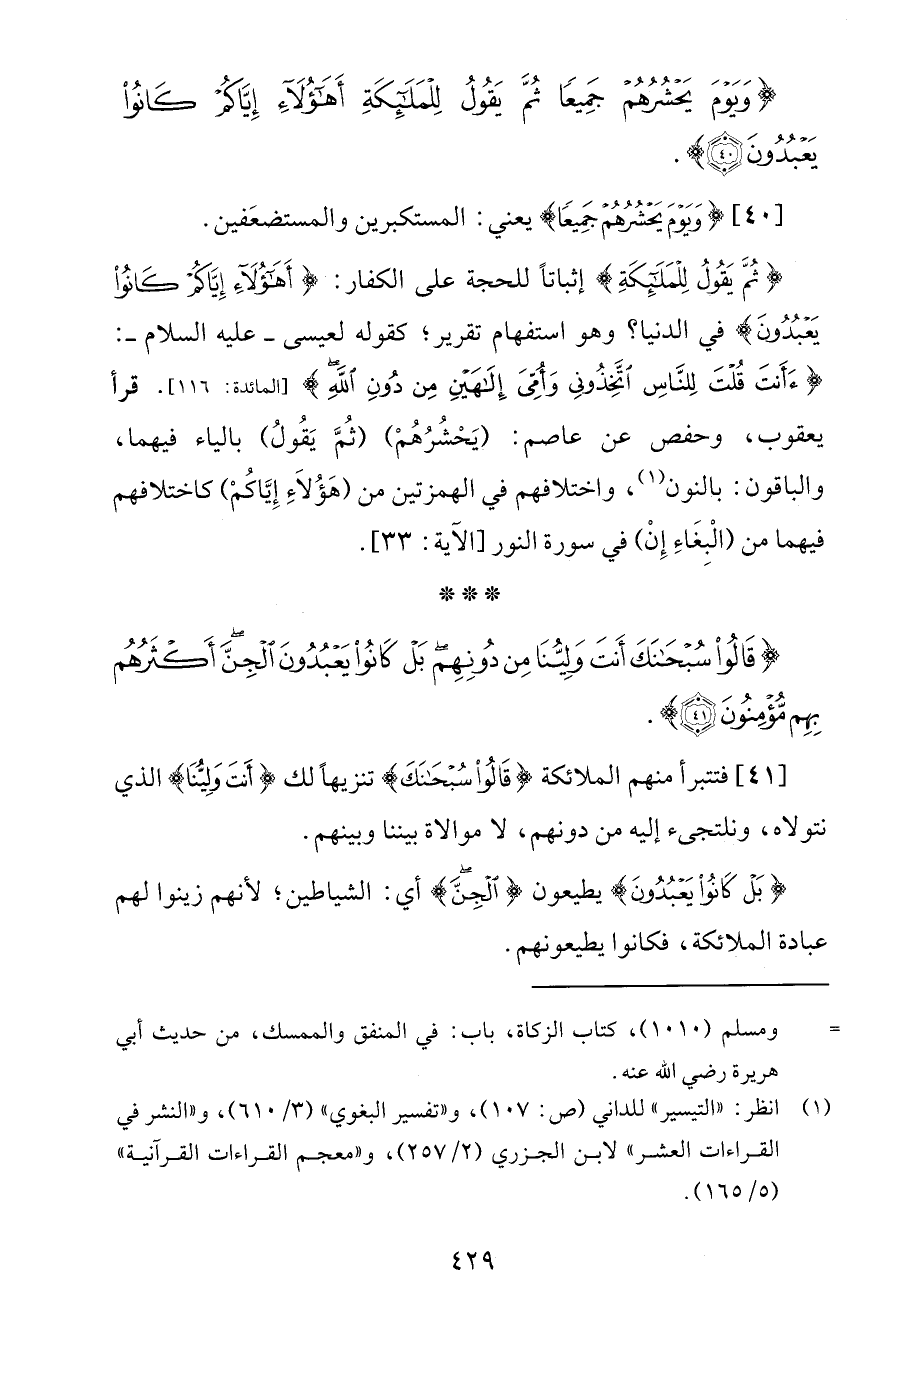 ﴿ وَيَوْمَ يَحْشُرُهُمْ جَمِيعًا ثُمَّ يَقُولُ لِلْمَلَٰٓئِكَةِ أَهَٰٓؤُلَآءِ إِيَّاكُمْ كَانُوا۟
يَعْبُدُونَ ﴿٤٠﴾﴾ .
[٤٠] ﴿ وَيَوْمَ يَحْشُرُهُمْ جَمِيعًا﴾ يعني: المستكبرين والمستضعَفين.
﴿ ثُمَّ يَقُولُ لِلْمَلَٰٓئِكَةِ ﴾ إثباتاً للحجة على الكفار: ﴿ أَهَٰٓؤُلَآءِ إِيَّاكُمْ كَانُوا۟
يَعْبُدُونَ﴾ في الدنيا؟ وهو استفهام تقرير؛ كقوله لعيسى ـ عليه السلام ـ:
﴿ ءَأَنتَ قُلْتَ لِلنَّاسِ ٱتَّخِذُونِي وَأُمِّيَ إِلَٰهَيْنِ مِن دُونِ ٱللَّهِۖ ﴾ [المائدة: ١١٦]. قرأ
يعقوب، وحفص عن عاصم: (يَحْشُرُهُمْ) (ثُمَّ يَقُولُ) بالياء فيهما،
والباقون: بالنون(١)، واختلافهم في الهمزتين من (هَؤُلاَءِ إِيَّاكُمْ) كاختلافهم
فيهما من (الْبِغَاءِ إِنْ) في سورة النور [الآية: ٣٣].
* * *
﴿ قَالُوا۟ سُبْحَٰنَكَ أَنتَ وَلِيُّنَا مِن دُونِهِمۖ بَلْ كَانُوا۟ يَعْبُدُونَ ٱلْجِنَّۖ أَكْثَرُهُم
بِهِم مُّؤْمِنُونَ ﴿٤١﴾﴾ .
[٤١] فتتبرأ منهم الملائكة ﴿ قَالُوا۟ سُبْحَٰنَكَ﴾ تنزيهاً لك ﴿ أَنتَ وَلِيُّنَا﴾ الذي
نتولاه، ونلتجىء إليه من دونهم، لا موالاة بيننا وبينهم.
﴿ بَلْ كَانُوا۟ يَعْبُدُونَ﴾ يطيعون ﴿ ٱلْجِنَّۖ﴾ أي: الشياطين؛ لأنهم زينوا لهم
عبادة الملائكة، فكانوا يطيعونهم.
= ومسلم (١٠١٠)، كتاب الزكاة، باب: في المنفق والممسك، من حديث أبي
هريرة رضي الله عنه.
(١) انظر: «التيسير» للداني (ص: ١٠٧)، و«تفسير البغوي» (٣/ ٦١٠)، و«النشر في
القراءات العشر» لابن الجزري (٢/ ٢٥٧)، و«معجم القراءات القرآنية»
(٥/ ١٦٥).
٤٢٩